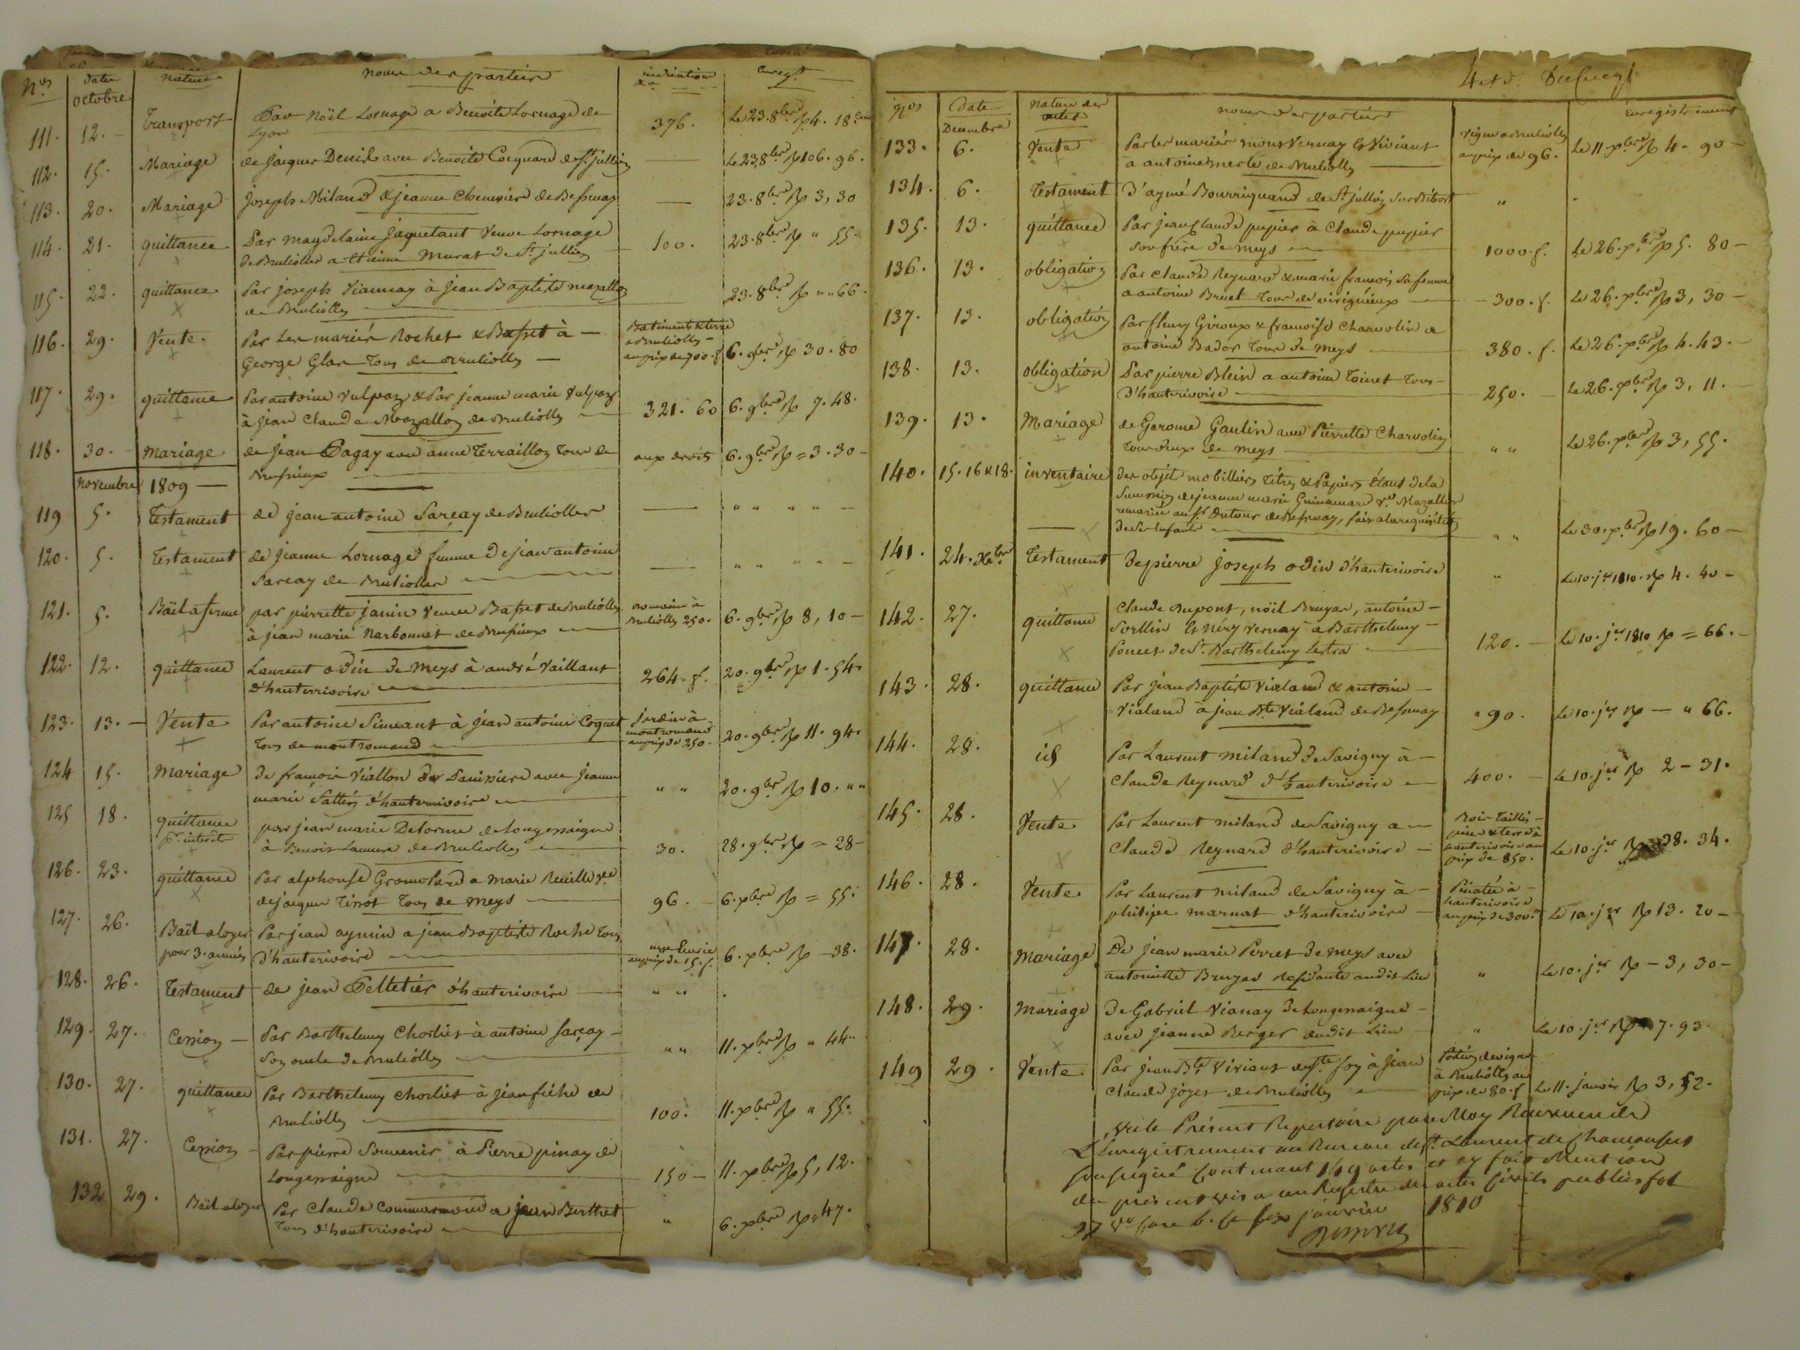 Nos date nature noms des parties indication enregt
octobre
111. 12. Transport Par Noël Lornage a Benoite Lornage de 376. Le 23. 8bre 4. 18
Lyon
112. 15. Mariage de jacques Denis avec Benoite Coquard de St jullien Le 23 8bre 106. 96.
113. 20. Mariage joseph Miland & jeanne Chenevier de Bessenay 23. 8bre 3, 30
114. 21. quittance Par magdelaine jaquetant veuve Lornage 100. 23. 8bre " 55
de Brulioles a Etienne Murat de St jullien
115. 22. quittance Par joseph Viannay à jean Baptiste mazallon 23. 8bre " " 66.
de Brulioles
116. 29. Vente. Par Les mariés Rochet & Basset à Batiment & terre
a Brulioles
George Glas tous de Brulioles au prix de 700. f. 6. 9bre 30. 80
117. 29. quittance Par antoine Vulpas & Par jeanne marie Vulpas 321. 60 6. 9bre 7. 48.
à jean Claude Mazallon de Brulioles
118. 30. mariage. de jean Pagay avec anne Terraillon tous de aux droits 6. 9bre = 3. 30
novembre 1809 Brussieux
119 5. Testament de jean antoine Sarcay de Brulioles " " " "
120. 5. Testament de jeanne Lornage femme de jean antoine " " " "
Sarcay de Brulioles
121. 5. Bail a ferme par pierrette janin veuve Basset de Brulioles domaine à
Brulioles 250. 6. 9bre 8, 10
à jean marie Narbonnet de Brussieux
122. 12. quittance Laurent odin de Meys à andré Vaillant 264. f. 20. 9bre 1. 54
d'hauterivoire
123. 13. Vente Par antoine Simeant à jean antoine Coquet jardin à
montromand
au prix de 250. 20. 9bre 11. 94
tous de montromand
124 15. mariage de françois Viallon avec jeanne " " 20. 9bre 10. " "
marie d'hauterivoire
125 18. quittance par jean marie Delorme de Longessaigne 30. 28. 9bre = 28
pr. interet à Benoit de Brulioles
126. 23. quittance Par alphonse Gromolard a Marie ve 96. 6. xbre = 55
de jacques tous de meys
127. 26. Bail a loyer Par jean aymin a jean Baptiste Roche tous
au prix de 15. f. 6. xbre 38.
pour 3. années d'hauterivoire
128. 26. Testament de jean Pelletier d'hauterivoire " "
129. 27. Cession Par Barthelemy Chorliet à antoine Sarcay " " 11. xbre " 44
Son oncle de Brulioles
130. 27. quittance Par Barthelemy Chorliet à jean de 100. 11. xbre " 55.
Brulioles
131. 27. Cession Par pierre Souvenir à Pierre pinay de 150 11. xbre 5, 12.
Longessaigne
132 29. Bail a loyer Par Claude Commarmond a jean Berthet " 6. xbre 47.
tous d'hauterivoire
Nos Date Nature des actes noms des parties Enregistrement
Decembre
133. 6. Vente Par les mariés Vernay & Viviant vigne a Brulioles
au prix de 96. Le 11 xbre 4. 90
à antoine merle de Brulioles
134. 6. Testament d'aymé Bourriquand de St jullien Sur Bibost "
135. 13. quittance Par jean Claude pupier à Claude pupier
Son frère de Meys 1000. f. Le 26. xbre 5. 80
136. 13. obligation Par Claude Reynard & marie françois Sa femme
a antoine Bruel tous de virigneux 300. f. Le 26. xbre 3, 30
137. 13. obligation Par fleury Giroux & françoise Charvolin a
antoine Bador tous de Meys 380. f. Le 26. xbre 4. 43.
138. 13. obligation Par pierre Blein a antoine Toinet tous
d'hauterivoire 250. Le 26. xbre 3, 11.
139. 13. Mariage de Gerome Gaulin avec Pierrette Charvolin
tous deux de meys " " Le 26. xbre 3, 55.
140. 15. 16 & 18. inventaire des objets mobilliers titres & Papiers étant de la
Succession de jeanne marie Guinamard ve Mazallon
remariée au Sr Dutour de Bessenay, fait a la requisition
de Ses Enfants " " Le 30. xbre 19. 60
141. 24. Xbre Testament de pierre joseph odin d'hauterivoire " Le 10. jer 1810. 4. 40
142. 27. quittance Claude Dupont, noël Bruyas, antoine
Sorllin & Néry Vernay a Barthelemy
Poncet de St. Barthelemy Lestra 120. Le 10. jer 1810 = 66.
143. 28. quittance Par jean Baptiste Vialand & antoine
Vialand à jean Bte Vialand de Bessenay " 90. Le 10. jer " 66.
144. 28. id Par Laurent miland de Savigny à
Claude Reynard d'hauterivoire 400. Le 10. jer 2 - 31.
145. 28. Vente Par Laurent miland de Savigny a Bois taillis
pinée & terre à
Claude Reynard d'hauterivoire hauterivoire au
prix de 850. Le 10. jer 38. 34.
146. 28. Vente Par Laurent miland de Savigny à Pinatée à
philipe marnat d'hauterivoire hauterivoire
au prix de 300. Le 10. jer 13. 20
147. 28. Mariage De jean marie Perret de meys avec
antoinette Bruyas Residante au dit Lieu " Le 10. jer 3, 30
148. 29. Mariage de Gabriel Vianay de Longessaigne
avec jeanne Berger du dit Lieu " Le 10. jer 7. 93.
149 29. Vente. Par jean Bte Viviant de Ste foy à jean Portion de vigne
à Brulioles au
Claude joyet de Brulioles prix de 80. f Le 11. janvier 3, 52.
Vu le Présent Repertoire par Moy Receveur de
L'Enregistrement au Bureau de St. Laurent de Chamousset
Soussigné Contenant 149 actes et ay fait Mention
du present vis a au Registre des actes Civils publics fol
27 vo Case 6. Le Six janvier 1810